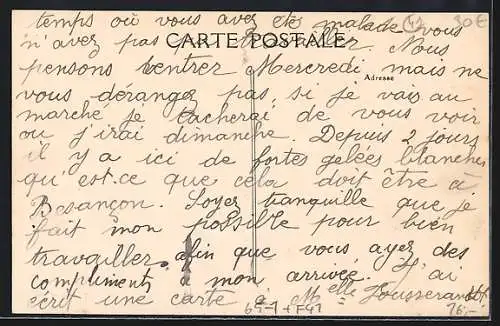 temps où vous avez été malade vous
n'avez pas pu travailler. Nous
CARTE POSTALE
pensons rentrer Mercredi, mais ne
Adresse
vous dérangez pas, si je vais au
marché je tacherai de vous voir
ou j'irai dimanche. Depuis 2 jours
il y a ici de fortes gelées blanches
qu'est-ce que cela doit être à
Besançon. Soyez tranquille que je
fait mon possible pour bien
travailler, afin que vous ayez des
compliments à mon arrivée. J'ai
écrit une carte à Melle Jousserandot.